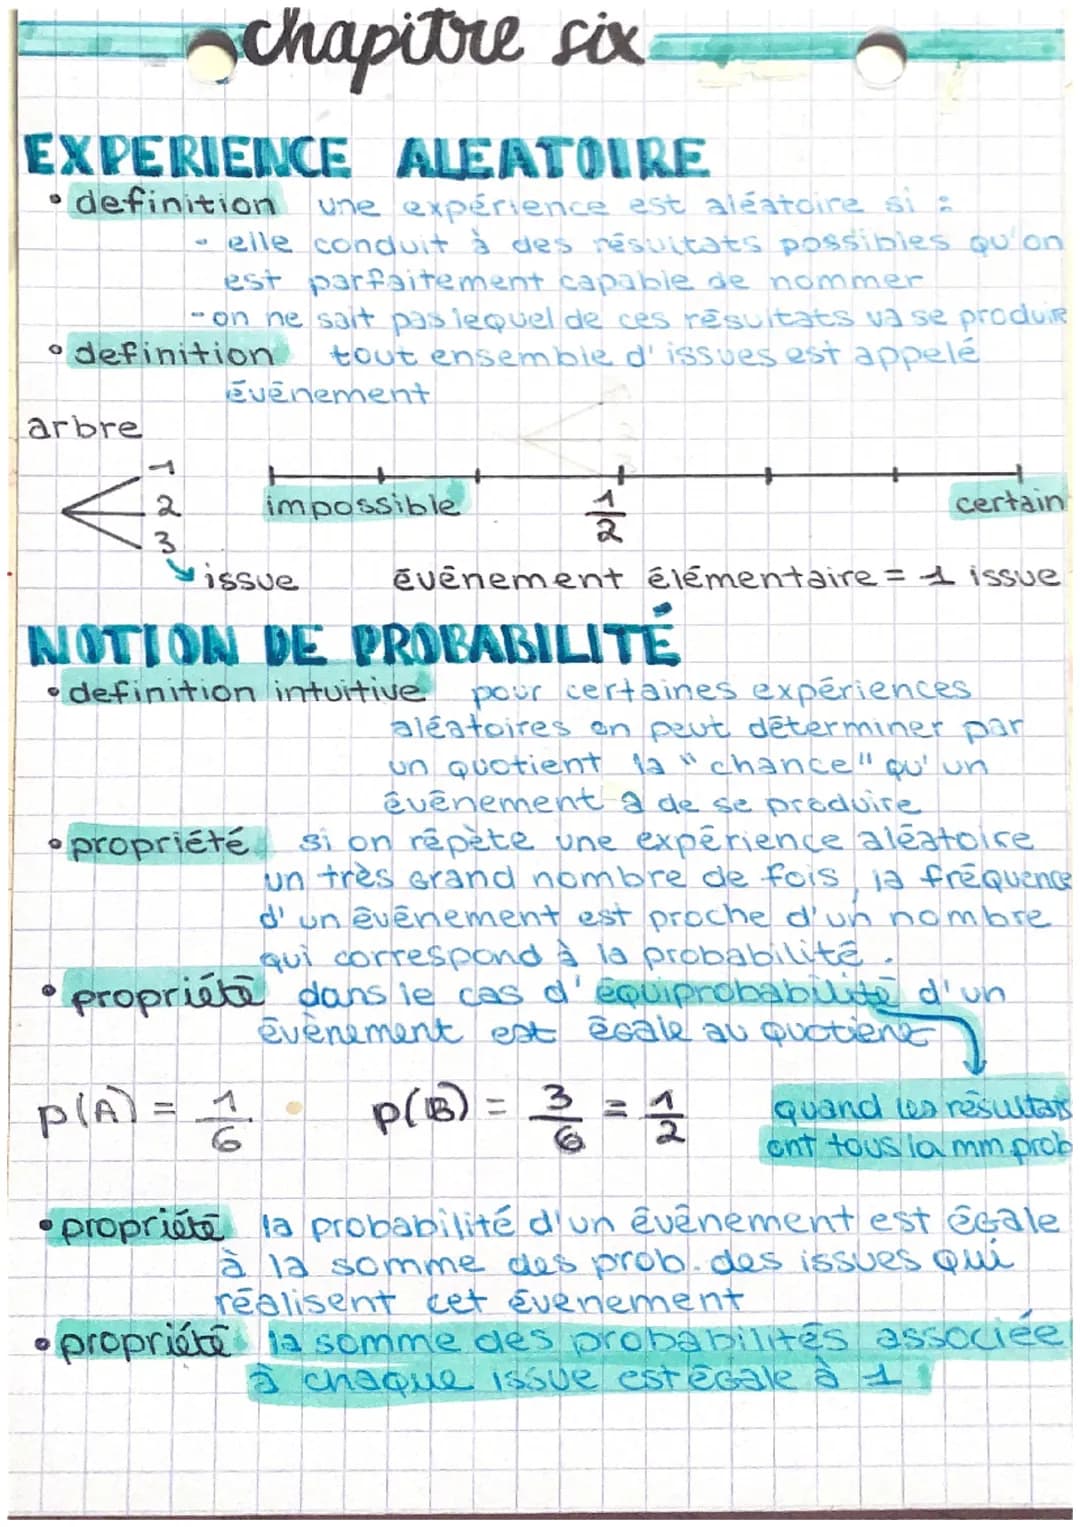 chapitre six
EXPERIENCE ALEATOIRE
• definition une expérience est aléatoire si :
- elle conduit à des résultats possibles qu'on
est parfaitement capable de nommer
- on ne sait pas lequel de ces résultats va se produire
• definition tout ensemble d'issues est appelé
événement
arbre
1
2
3
impossible 1/2 certain
issue événement élémentaire = 1 issue
NOTION DE PROBABILITÉ
• definition intuitive pour certaines expériences
aléatoires on peut déterminer par
un quotient la "chance" qu'un
événement a de se produire
• propriété si on répète une expérience aléatoire
un très grand nombre de fois, la fréquence
d'un événement est proche d'un nombre
qui correspond à la probabilité.
• propriété dans le cas d'équiprobabilité d'un
évènement est égale au quotient
p(A) = 1/6 p(B) = 3/6 = 1/2
quand les résultats
ont tous la mm prob
• propriété la probabilité d'un événement est égale
à la somme des prob. des issues qui
réalisent cet évenement
• propriété la somme des probabilités associée
à chaque issue est égale à 1